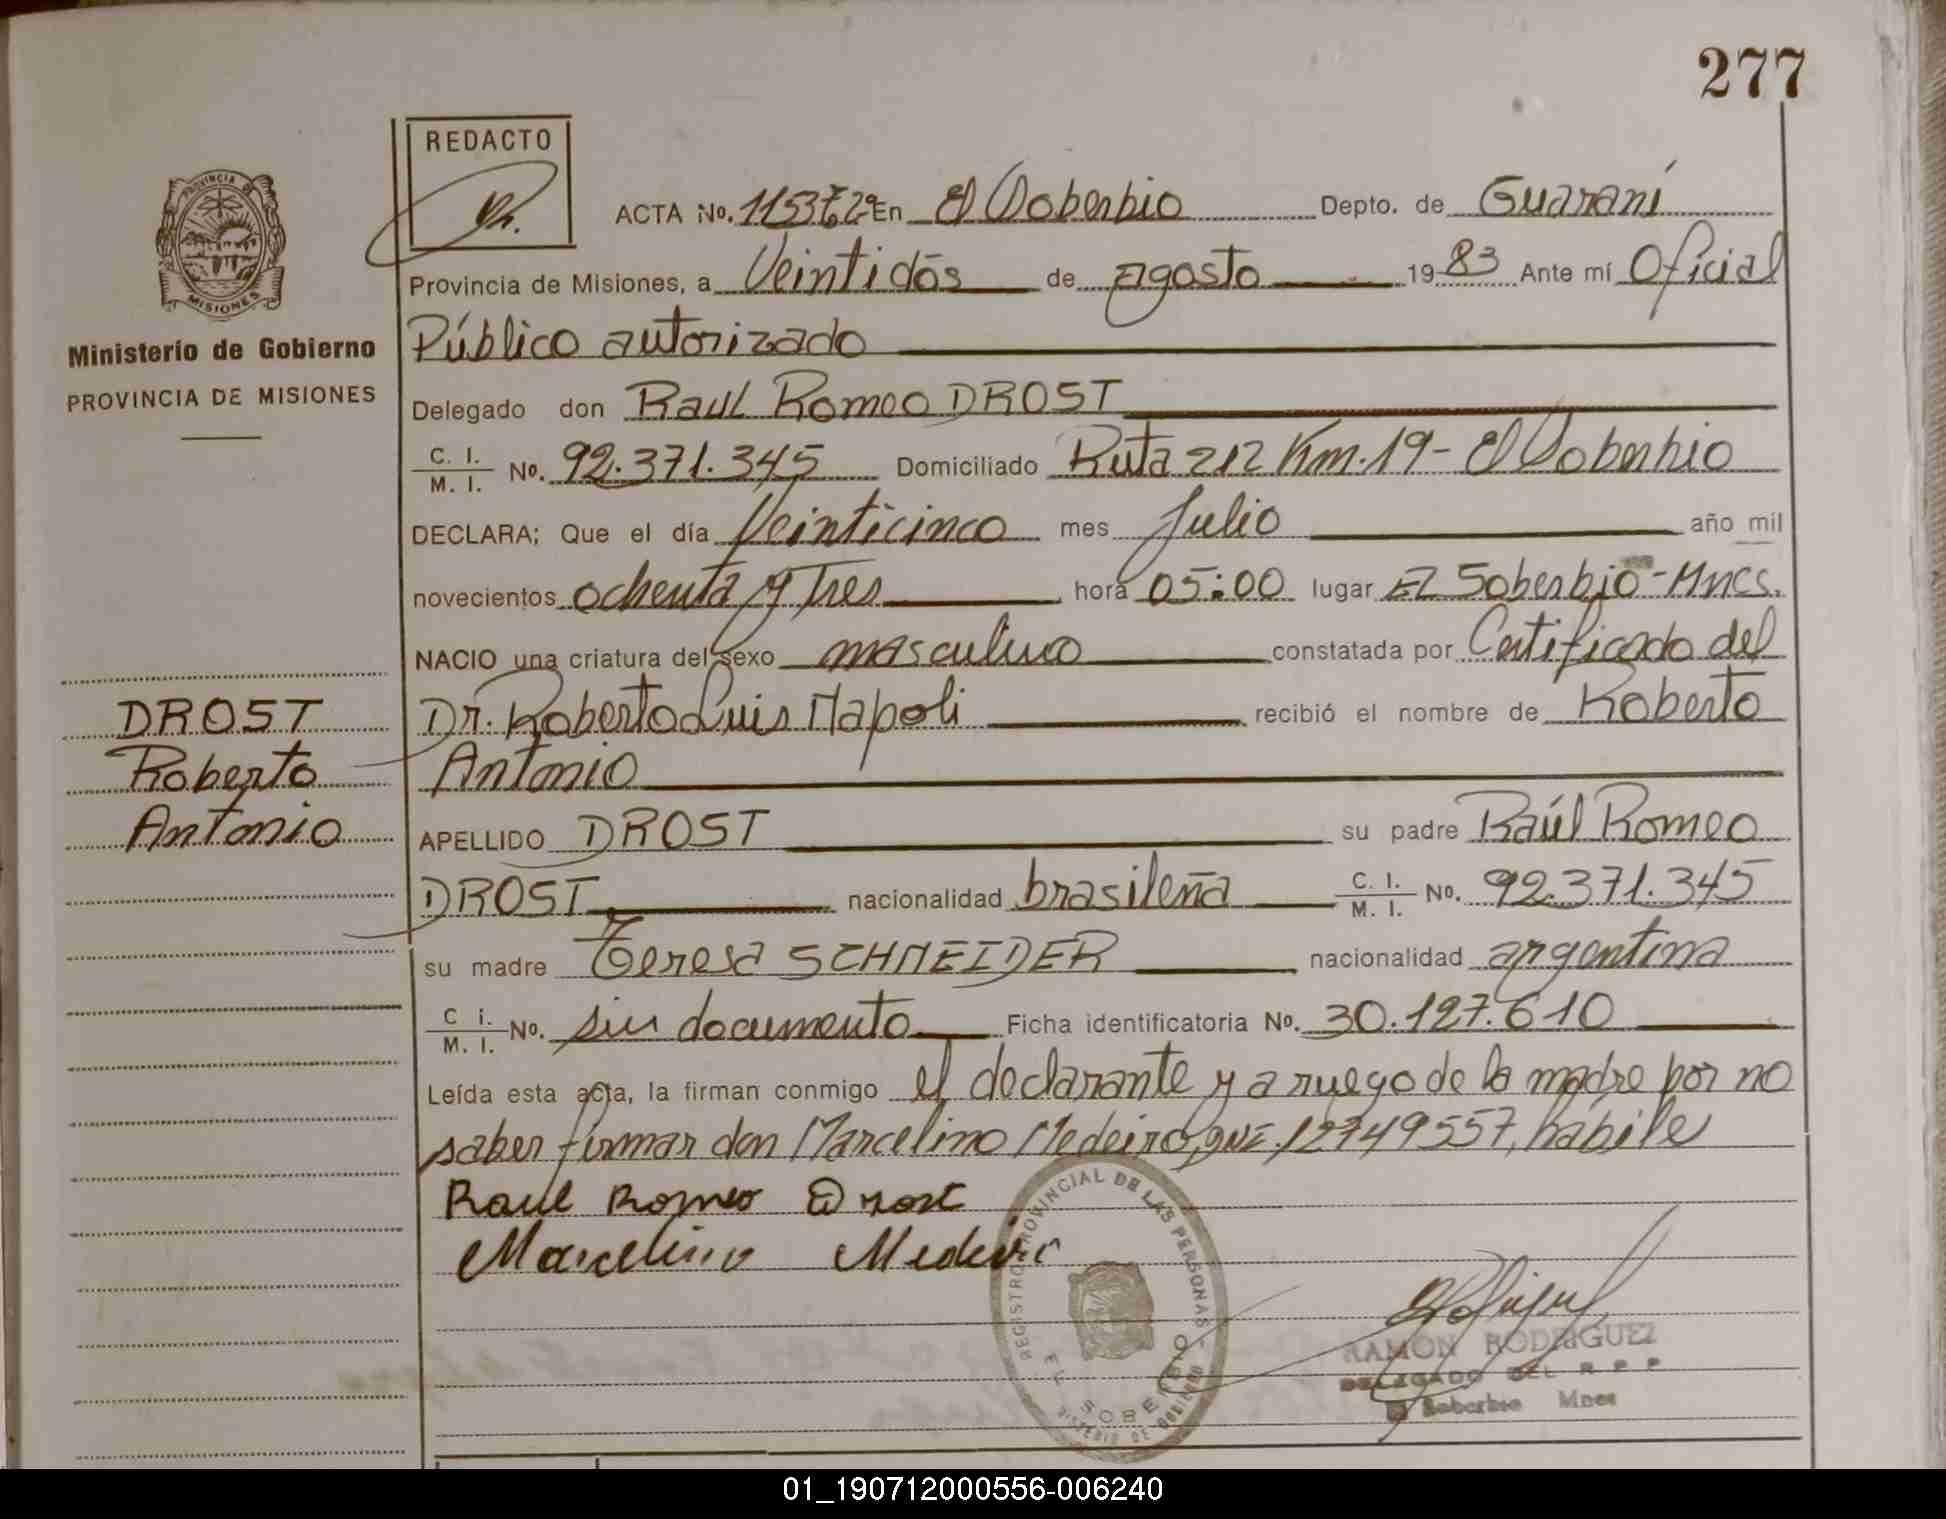 277
REDACTO
PROVINCIA DE
MISIONES
Ministerio de Gobierno
PROVINCIA DE MISIONES
ACTA No. En El Soberbio Depto. de Guaraní
Provincia de Misiones, a Veintidós de agosto 1983 Ante mí Oficial
Público autorizado
Delegado don Raul Romeo DROST
C. I. / M. I. No. 92.371.345 Domiciliado Ruta 212 Km. 19 - El Soberbio
DECLARA; Que el día Veinticinco mes Julio año mil
novecientos ochenta y Tres hora 05:00 lugar El Soberbio - Mnes.
NACIO una criatura del sexo masculino constatada por Certificado del
Dr. Roberto Luis Napoli recibió el nombre de Roberto
Antonio
APELLIDO DROST su padre Raúl Romeo
DROST nacionalidad brasileña C. I. / M. I. No. 92.371.345
su madre Teresa SCHNEIDER nacionalidad argentina
C i. / M. I. No. sin documento Ficha identificatoria No. 30.127.610
Leída esta acta, la firman conmigo el declarante y a ruego de la madre por no
saber firmar don Marcelino Medeiro, 12749557, hábile
Raul Romeo Drost
Marcelino Medeiro
DROST
Roberto
Antonio
REGISTRO PROVINCIAL DE LAS PERSONAS
EL SOBERBIO
MINISTERIO DE GOBIERNO
RAMON RODRIGUEZ
DELEGADO DEL R P P
El Soberbio Mnes
01_190712000556-006240